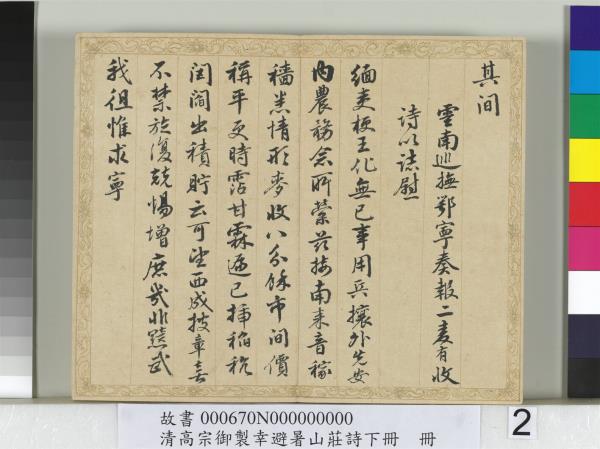 其间
雲南巡撫鄂寧奏報二麦有收
詩以誌慰
緬吏梗王化無已事用兵攘外先安
内農務念所縈兹接南来音稼
穡悉情形麥收八分餘市间價
稱平更時霑甘霖遍已挿稲秔
闾阎出積貯云可望西成披章喜
不禁旋復兢惕增庶幾非黷武
我但惟求寧
故書 000670N000000000
清高宗御製幸避暑山莊詩下冊 冊
2